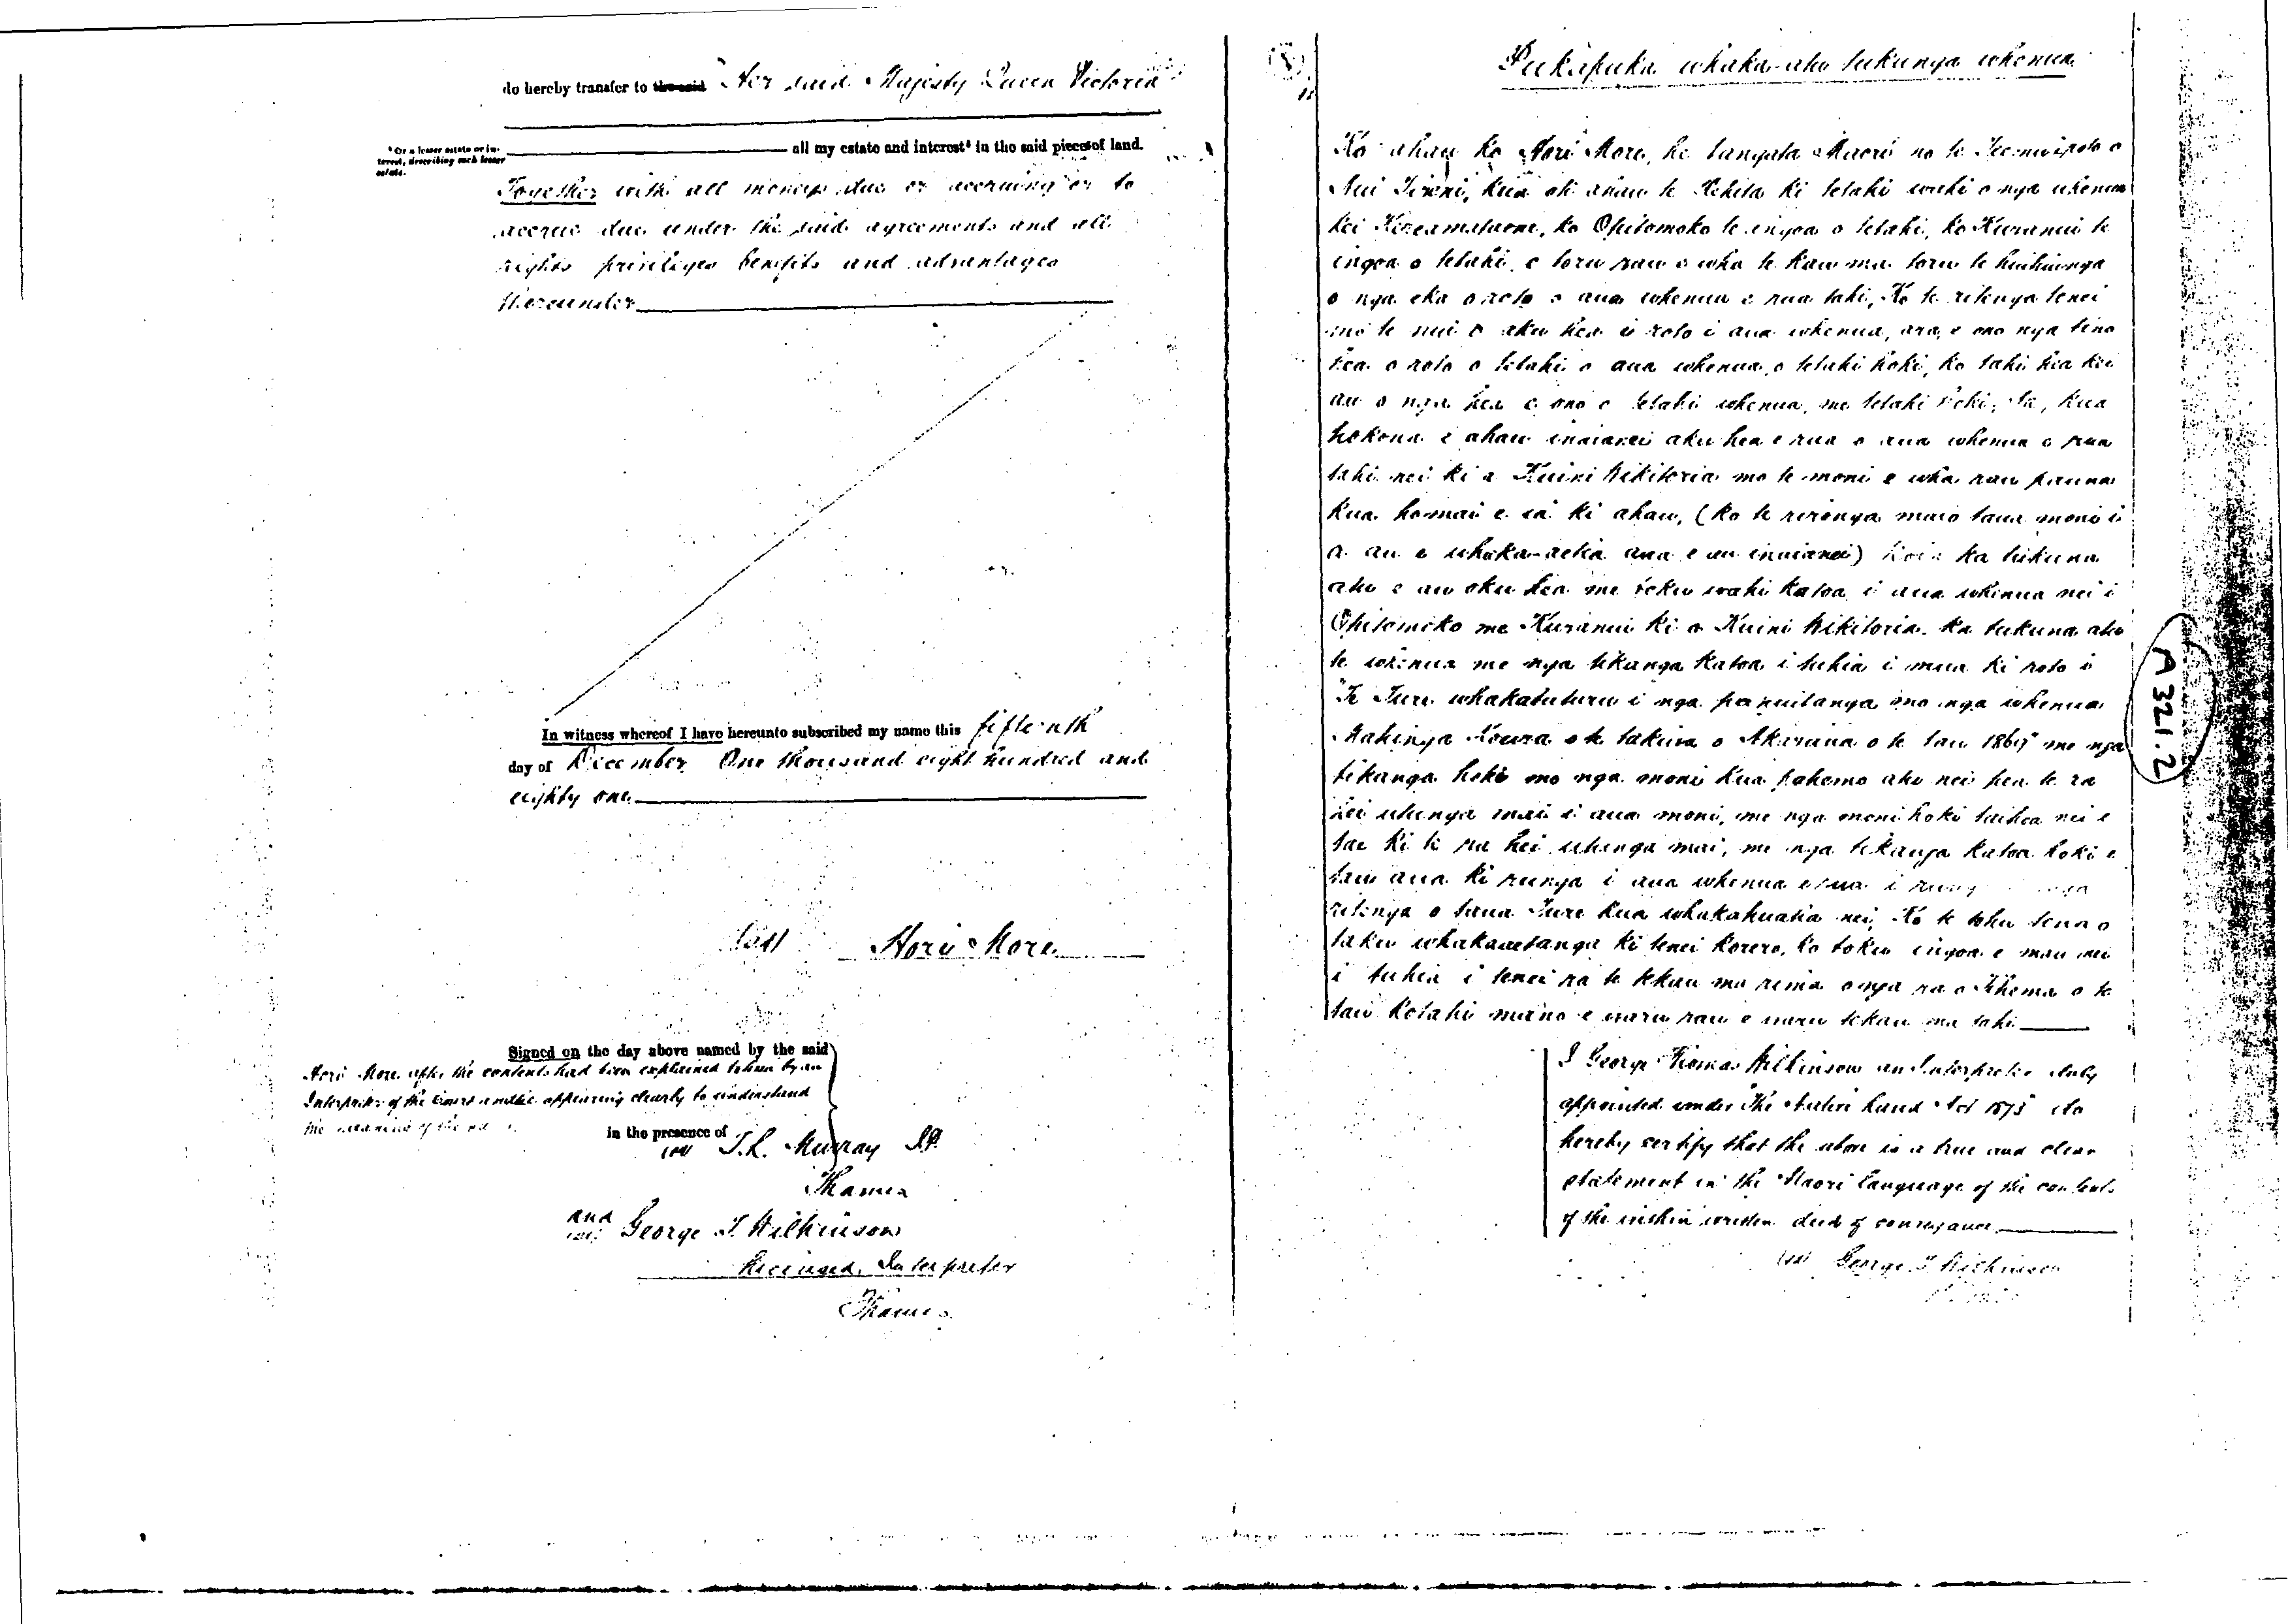 do hereby transfer to the said Her said Majesty Queen Victoria
* Or a lesser estate or in-
terest, describing such lesser
estate.
all my estate and interest* in the said pieces of land.
Together with all moneys due or accruing or to
accrue due under the said agreements and all
rights priviliges benefits and advantages
thereunder
In witness whereof I have hereunto subscribed my name this fifteenth
day of December One thousand eight hundred and
eighty one
Hori More
Signed on the day above named by the said
Hori More after the contents had been explained to him by an
Interpreter of the Court and he appearing clearly to understand
the meaning of the
in the presence of
T. L. Murray J.P.
Thames
and
George T Wilkinson
Licensed Interpreter
Thames
Pukapuka whaka-atu tukunga whenua
Ko ahau ko Hori More, he tangata Maori no te o
Nui Tireni, kua oti ahau te Rehita ki tetahi wahi o nga whenua
kei , ko Ohitomoko te ingoa o tetahi, ko Kuranui te
ingoa o tetahi, e toru rau e wha te kau ma toru te huihuinga
o nga eka o roto o aua whenua e rua tahi, Ko te ritenga tenei
mo te nui o aku hea i roto i aua whenua, ara, e ono nga tino
hea o roto o tetahi o aua whenua, o tetahi hoki, ko tahi hea kei
au o nga hea e ono o tetahi whenua, me tetahi hoki, Na, kua
hokona e ahau inaianei aku hea e rua o aua whenua e rua
tahi nei ki a Kuini Wikitoria mo te moni e wha rau pauna
kua homai e ia ki ahau, (ko te rironga maio taua moni i
a au e whaka-aetia ana e au inaianei) koia ka tukuna
atu e au oku hea me toku wahi katoa i aua whenua nei i
Ohitomoko me Kuranui ki a Kuini Wikitoria. ka tukuna atu
te whenua me nga tikanga katoa i tuhia i mua ki roto i
Te Ture whakatuturu i nga panuitanga mo nga whenua
Mahinga Koura o te takiwa o Akarana o te tau 1869 me nga
tikanga hoki mo nga moni kua pahemo atu nei hea te ra
hei utunga mai i aua moni, me nga moni hoki taihoa nei e
tae ki te ra hei utunga mai, me nga tikanga katoa hoki e
tau ana ki runga i aua whenua e rua i runga nga
ritenga o taua Ture kua whakahuatia nei, Ko te tohu tena o
taku whakaaetanga ki tenei korero, ko toku ingoa e mau nei
i tuhia i tenei ra te tekau ma rima o nga ra o Tihema o te
tau kotahi mano e waru rau e waru tekau ma tahi
I George Thomas Wilkinson an Interpreter duly
appointed under The Native Land Act 1873 do
hereby certify that the above is a true and clear
statement in the Maori language of the contents
of the within written deed of conveyance
George T Wilkinson
A 321.2